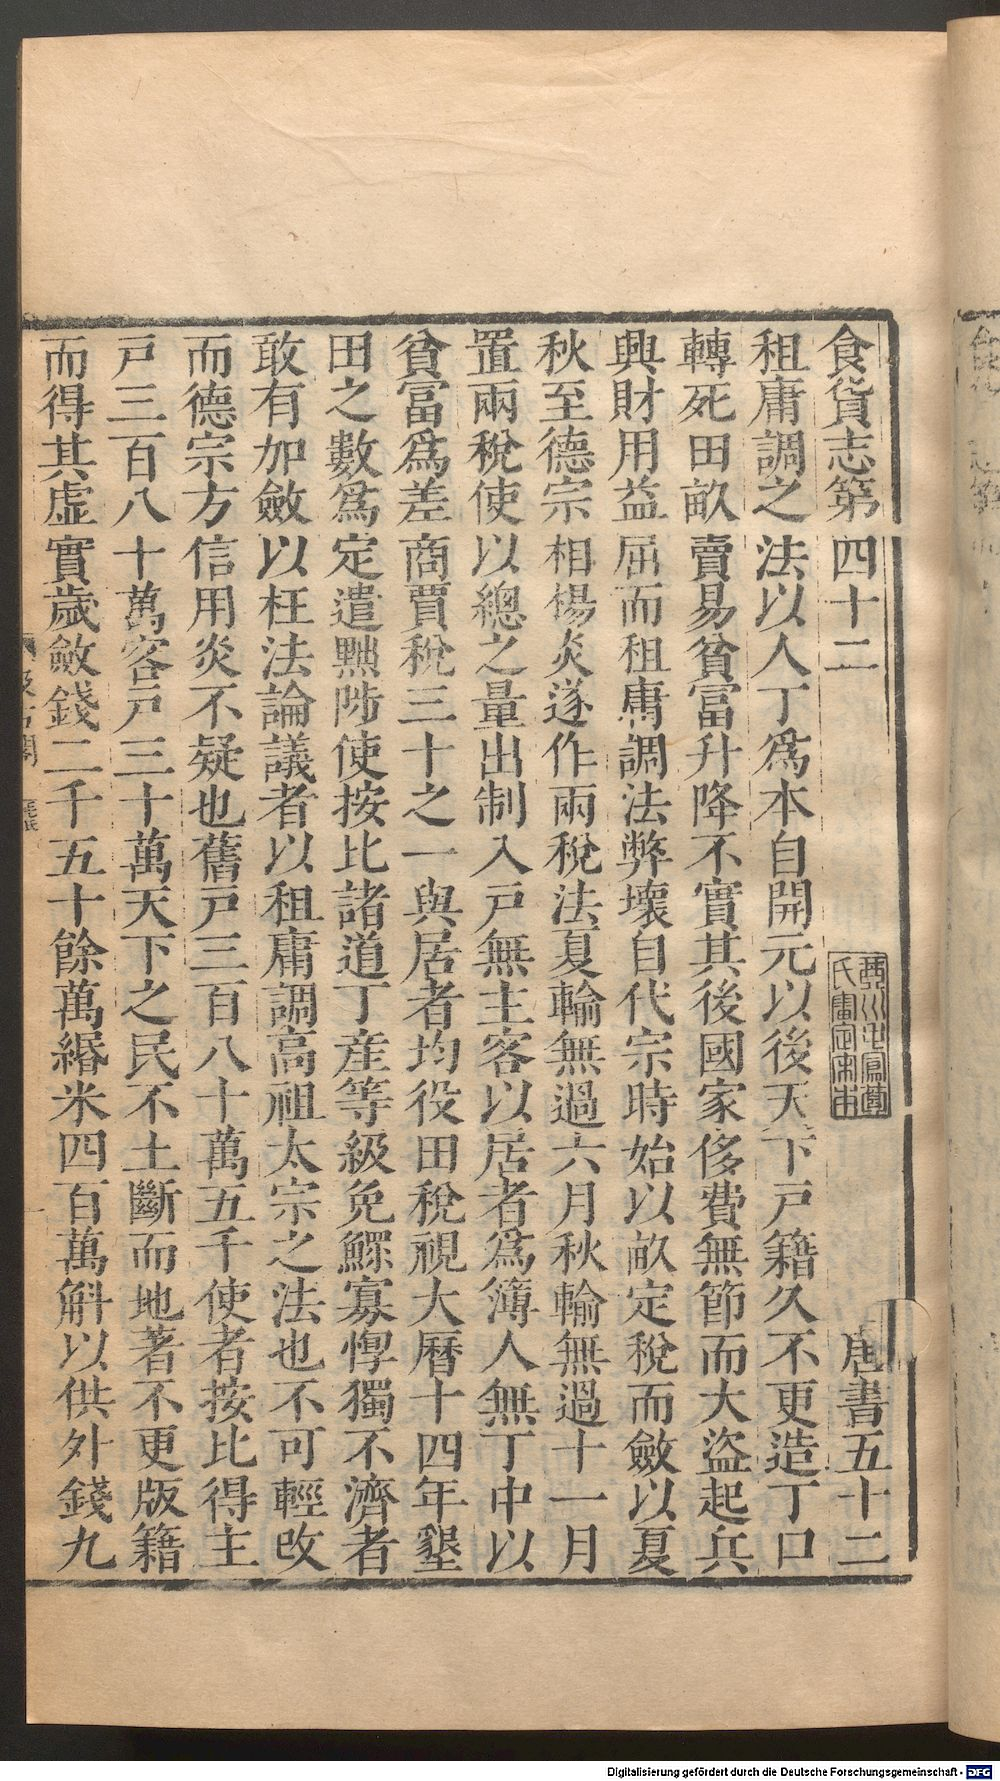 食貨志第四十二 唐書五十二
租庸調之法以人丁爲本自開元以後天下戸籍久不更造丁口
轉死田畝賣易貧富升降不實其後國家侈費無節而大盜起兵
興財用益屈而租庸調法弊壞自代宗時始以畝定稅而斂以夏
秋至德宗相楊炎遂作兩稅法夏輸無過六月秋輸無過十一月
置兩稅使以總之量出制入戸無主客以居者爲簿人無丁中以
貧富爲差商賈稅三十之一與居者均役田稅視大曆十四年墾
田之數爲定遣黜陟使按比諸道丁產等級免鰥寡惸獨不濟者
敢有加斂以枉法論議者以租庸調高祖太宗之法也不可輕改
而德宗方信用炎不疑也舊戸三百八十萬五千使者按比得主
戸三百八十萬客戸三十萬天下之民不土斷而地著不更版籍
而得其虛實歲斂錢二千五十餘萬緡米四百萬斛以供外錢九
Digitalisierung gefördert durch die Deutsche Forschungsgemeinschaft - DFG